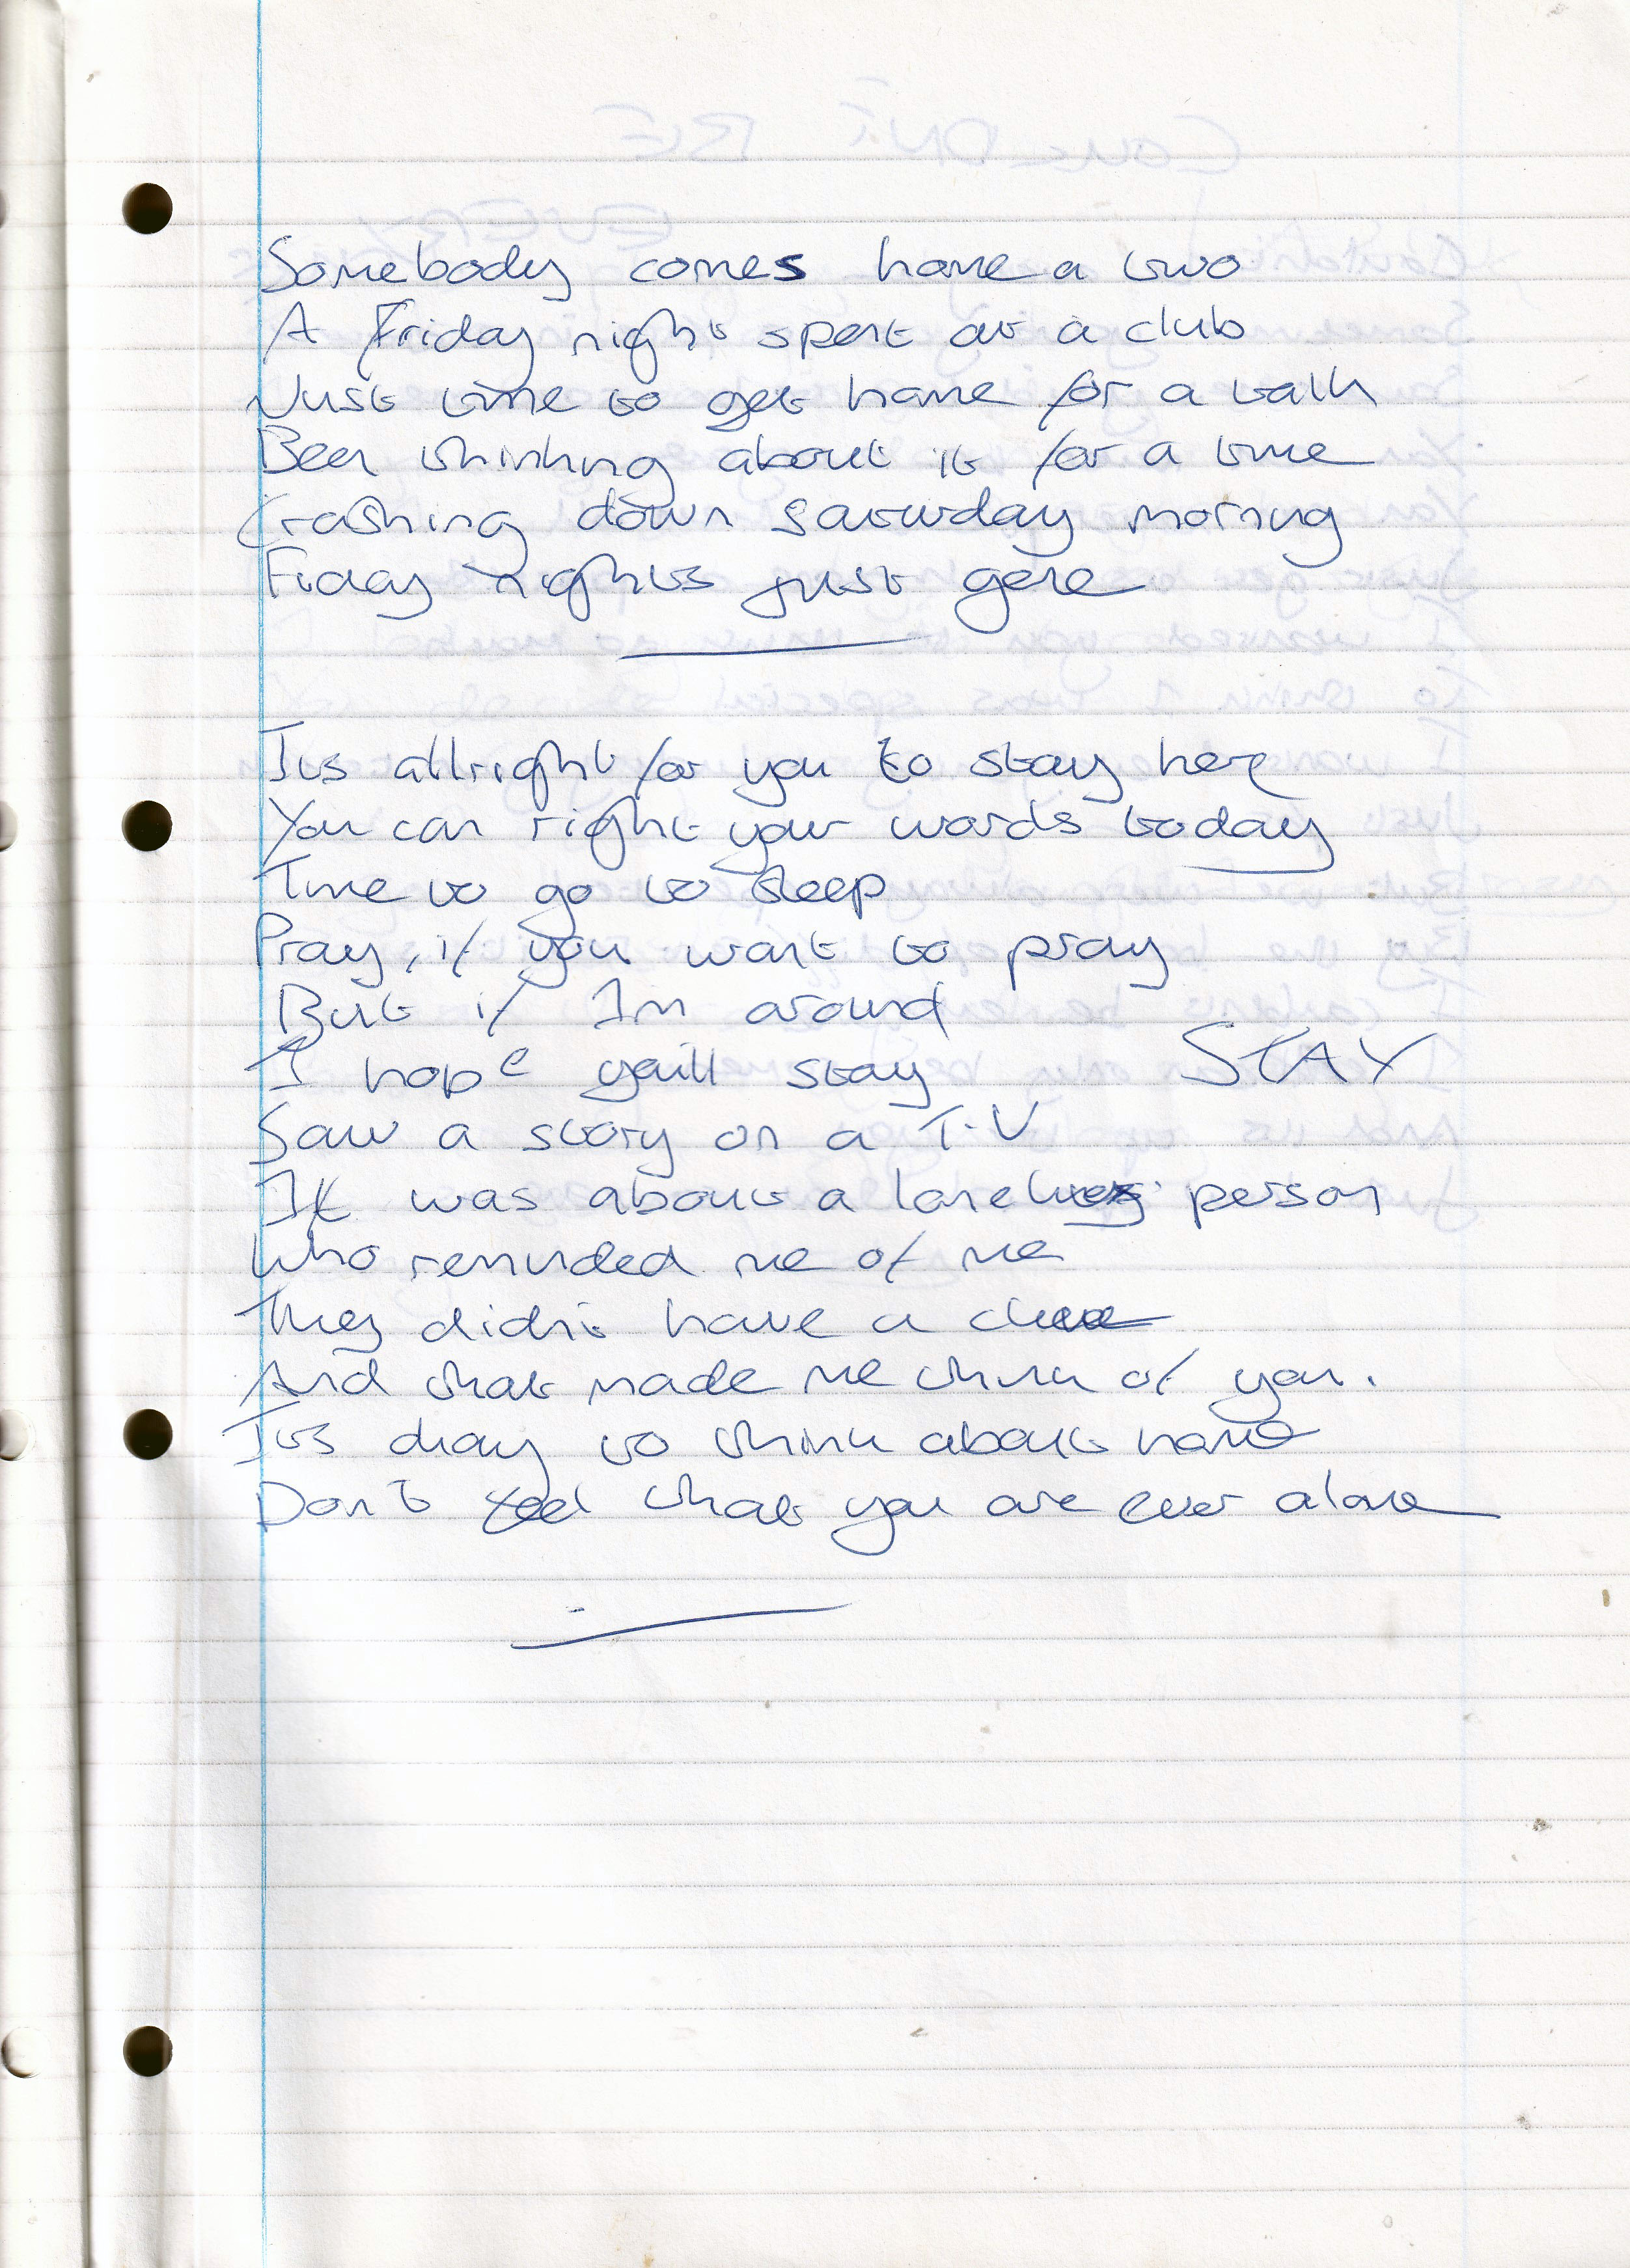 Somebody comes home a two
A Friday night spent at a club
Just time to get home for a talk
Been thinking about it for a time
Crashing down saturday morning
Friday nights just gone
Its allright for you to stay here
You can right your words today
Time to go to sleep
Pray, if you want to pray
But if Im around
I hope you'll stay STAY
Saw a story on a T.V
It was about a person
Who reminded me of me
They didn't have a clue
And that made me think of you.
Its okay to think about home
Don't feel that you are ever alone